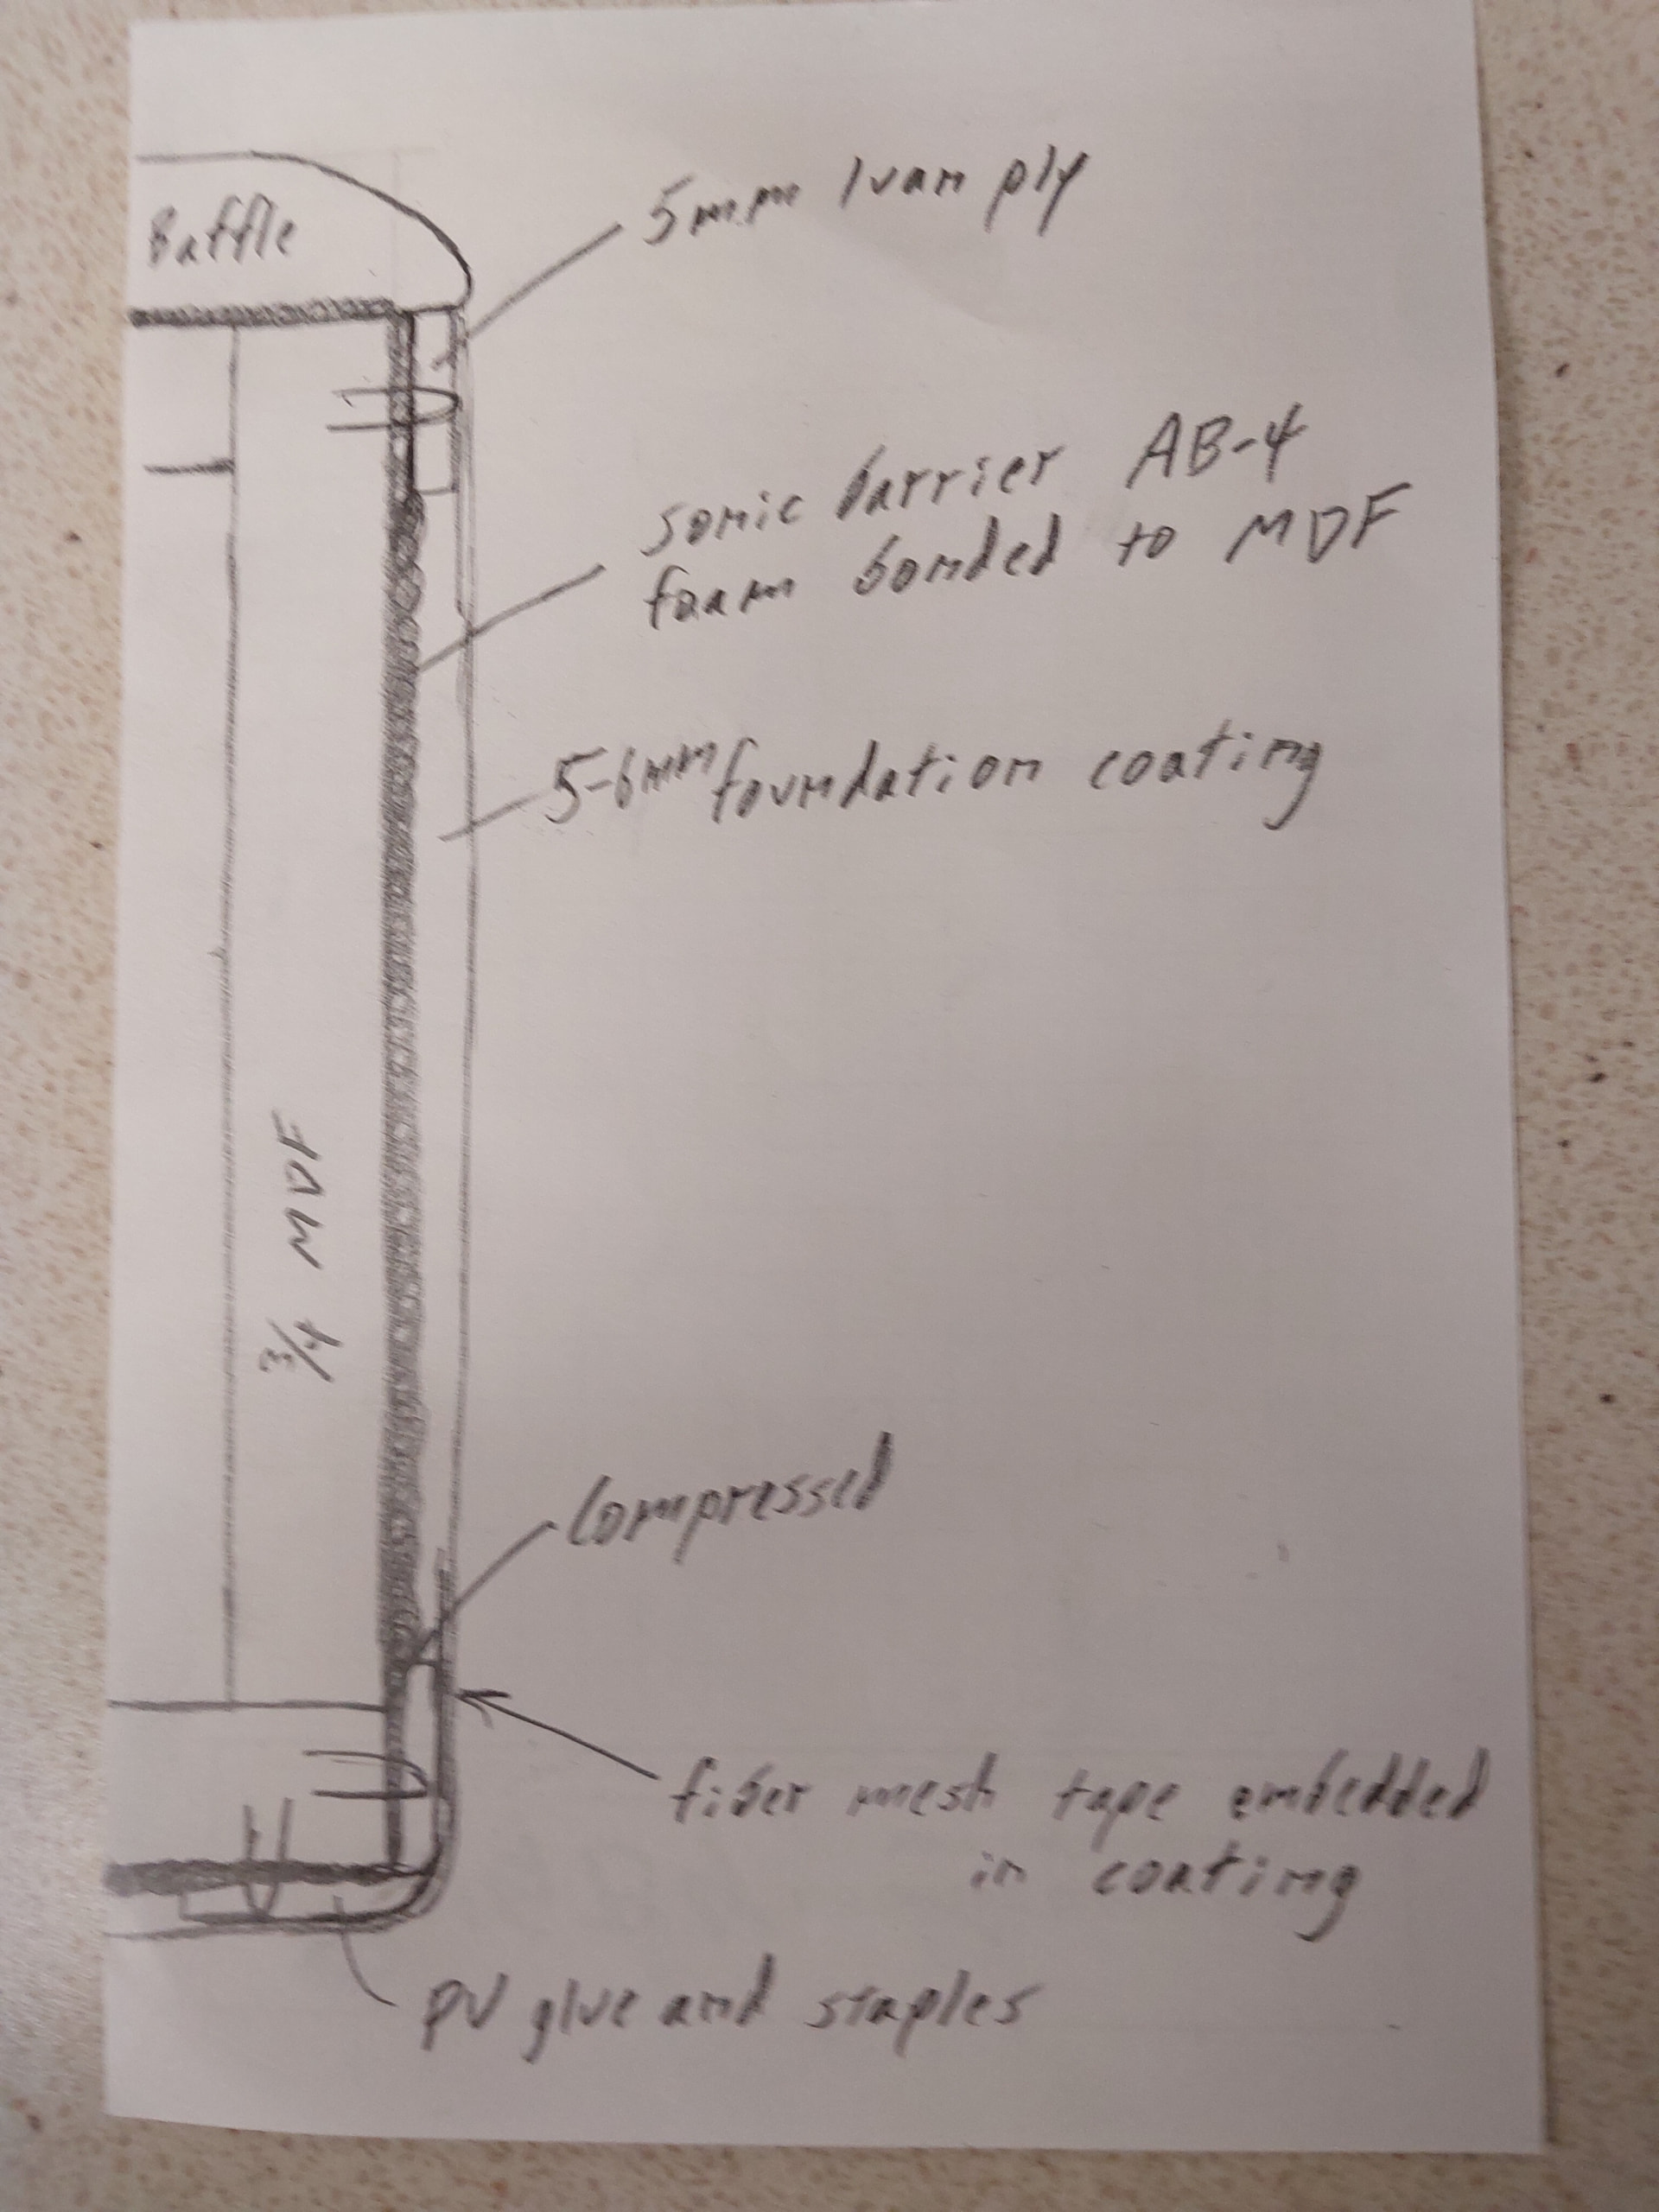 Baffle
5mm luan ply
sonic barrier AB-4
foam bonded to MDF
5-6mm foundation coating
3/4 MDF
Compressed
fiber mesh tape embedded
in coating
PU glue and staples